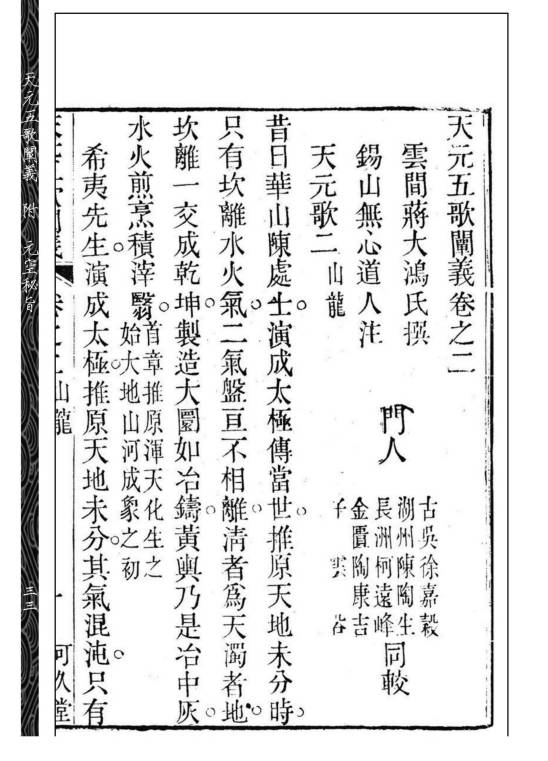 天元五歌闡義卷之二
雲間蔣大鴻氏撰
錫山無心道人注
門人
古吳徐嘉穀
湖州陳陶生
長洲柯遠峰
金匱陶康吉
子 雲谷
同較
天元歌二 山龍
昔日華山陳處士。演成太極傳當世。推原天地未分時。
只有坎離水火氣。二氣盤亘不相離。清者為天濁者地。
坎離一交成乾坤。製造大圜如冶鑄。黃輿乃是冶中灰。
水火煎烹積滓翳。首章推原渾天化生之
始大地山河成象之初
希夷先生演成太極。推原天地未分。其氣混沌。只有
卷之二山龍
一
可久堂
天元五歌闡義 附 元空秘旨
三三